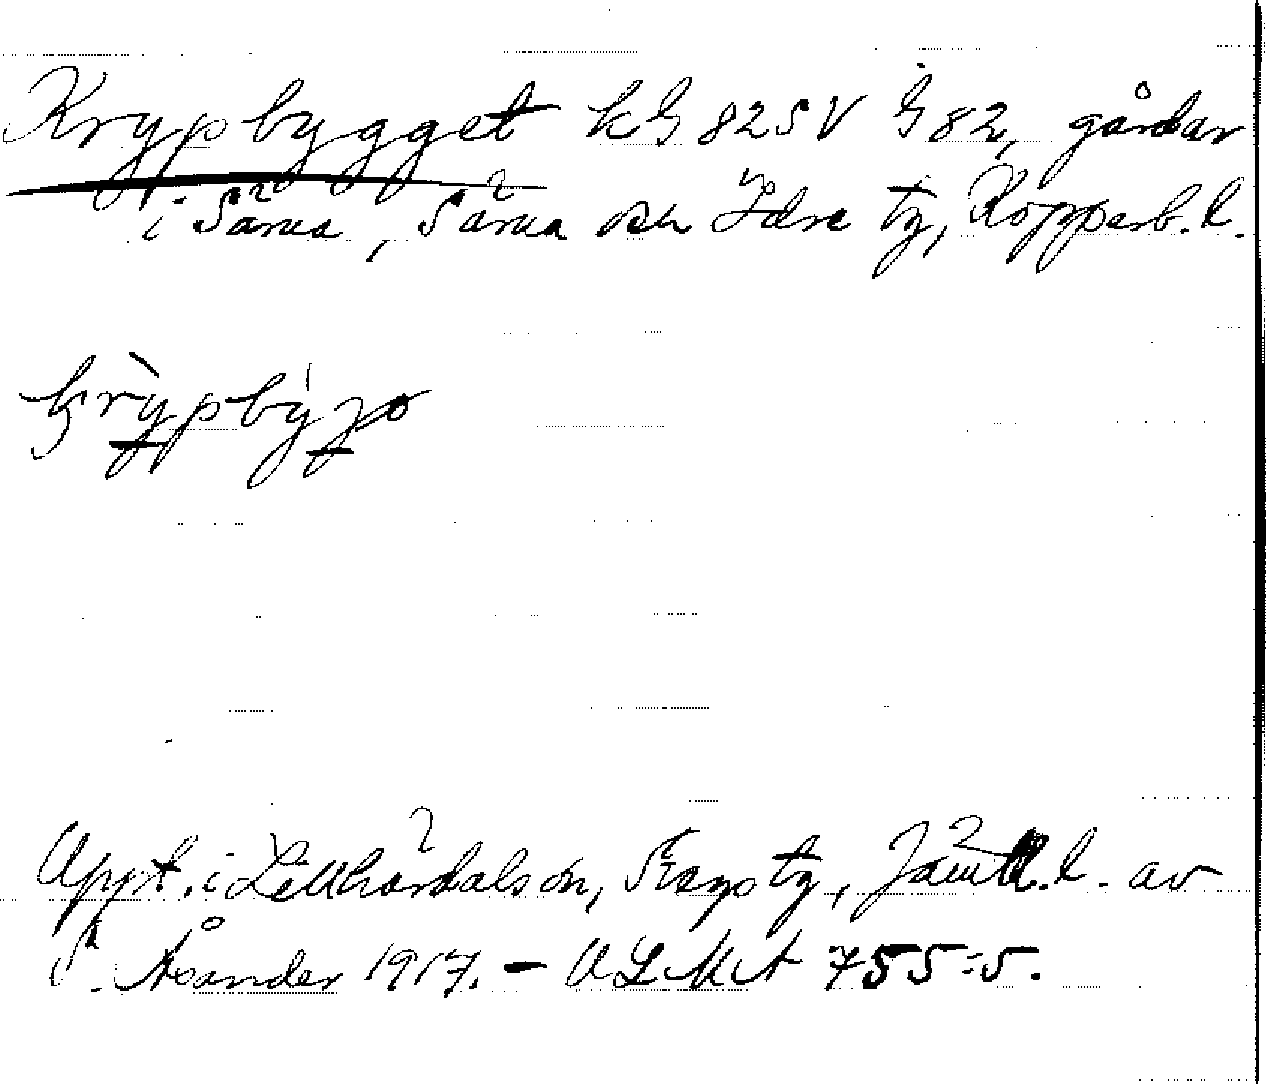 Krypbygget kG 82SV G 82, gårdar
i Särna, Särna och Idre tg, Kopparb. l.
krypbyjo
Uppt. i Lillhärdals sn, Svegs tg, Jämtl. l. av
S. Åsander 1917. - ULMA 755:5.